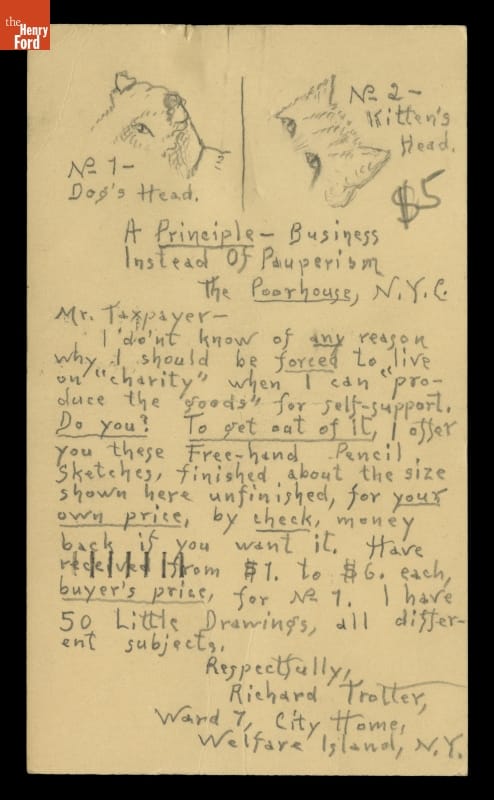 the
Henry
Ford
No 1 –
Dog's Head.
No 2 –
Kitten's
Head.
$5
A Principle – Business
Instead Of Pauperism
The Poorhouse, N.Y.C.
Mr. Taxpayer –
I do'nt know of any reason
why I should be forced to live
on "charity" when I can "pro-
duce the goods" for self-support.
Do you? To get out of it, I offer
you these Free-hand Pencil
Sketches, finished about the size
shown here unfinished, for your
own price, by check, money
back if you want it. Have
received from $1. to $6. each,
buyer's price, for No 1. I have
50 Little Drawings, all differ-
ent subjects.
Respectfully,
Richard Trotter,
Ward 7, City Home,
Welfare Island, N.Y.